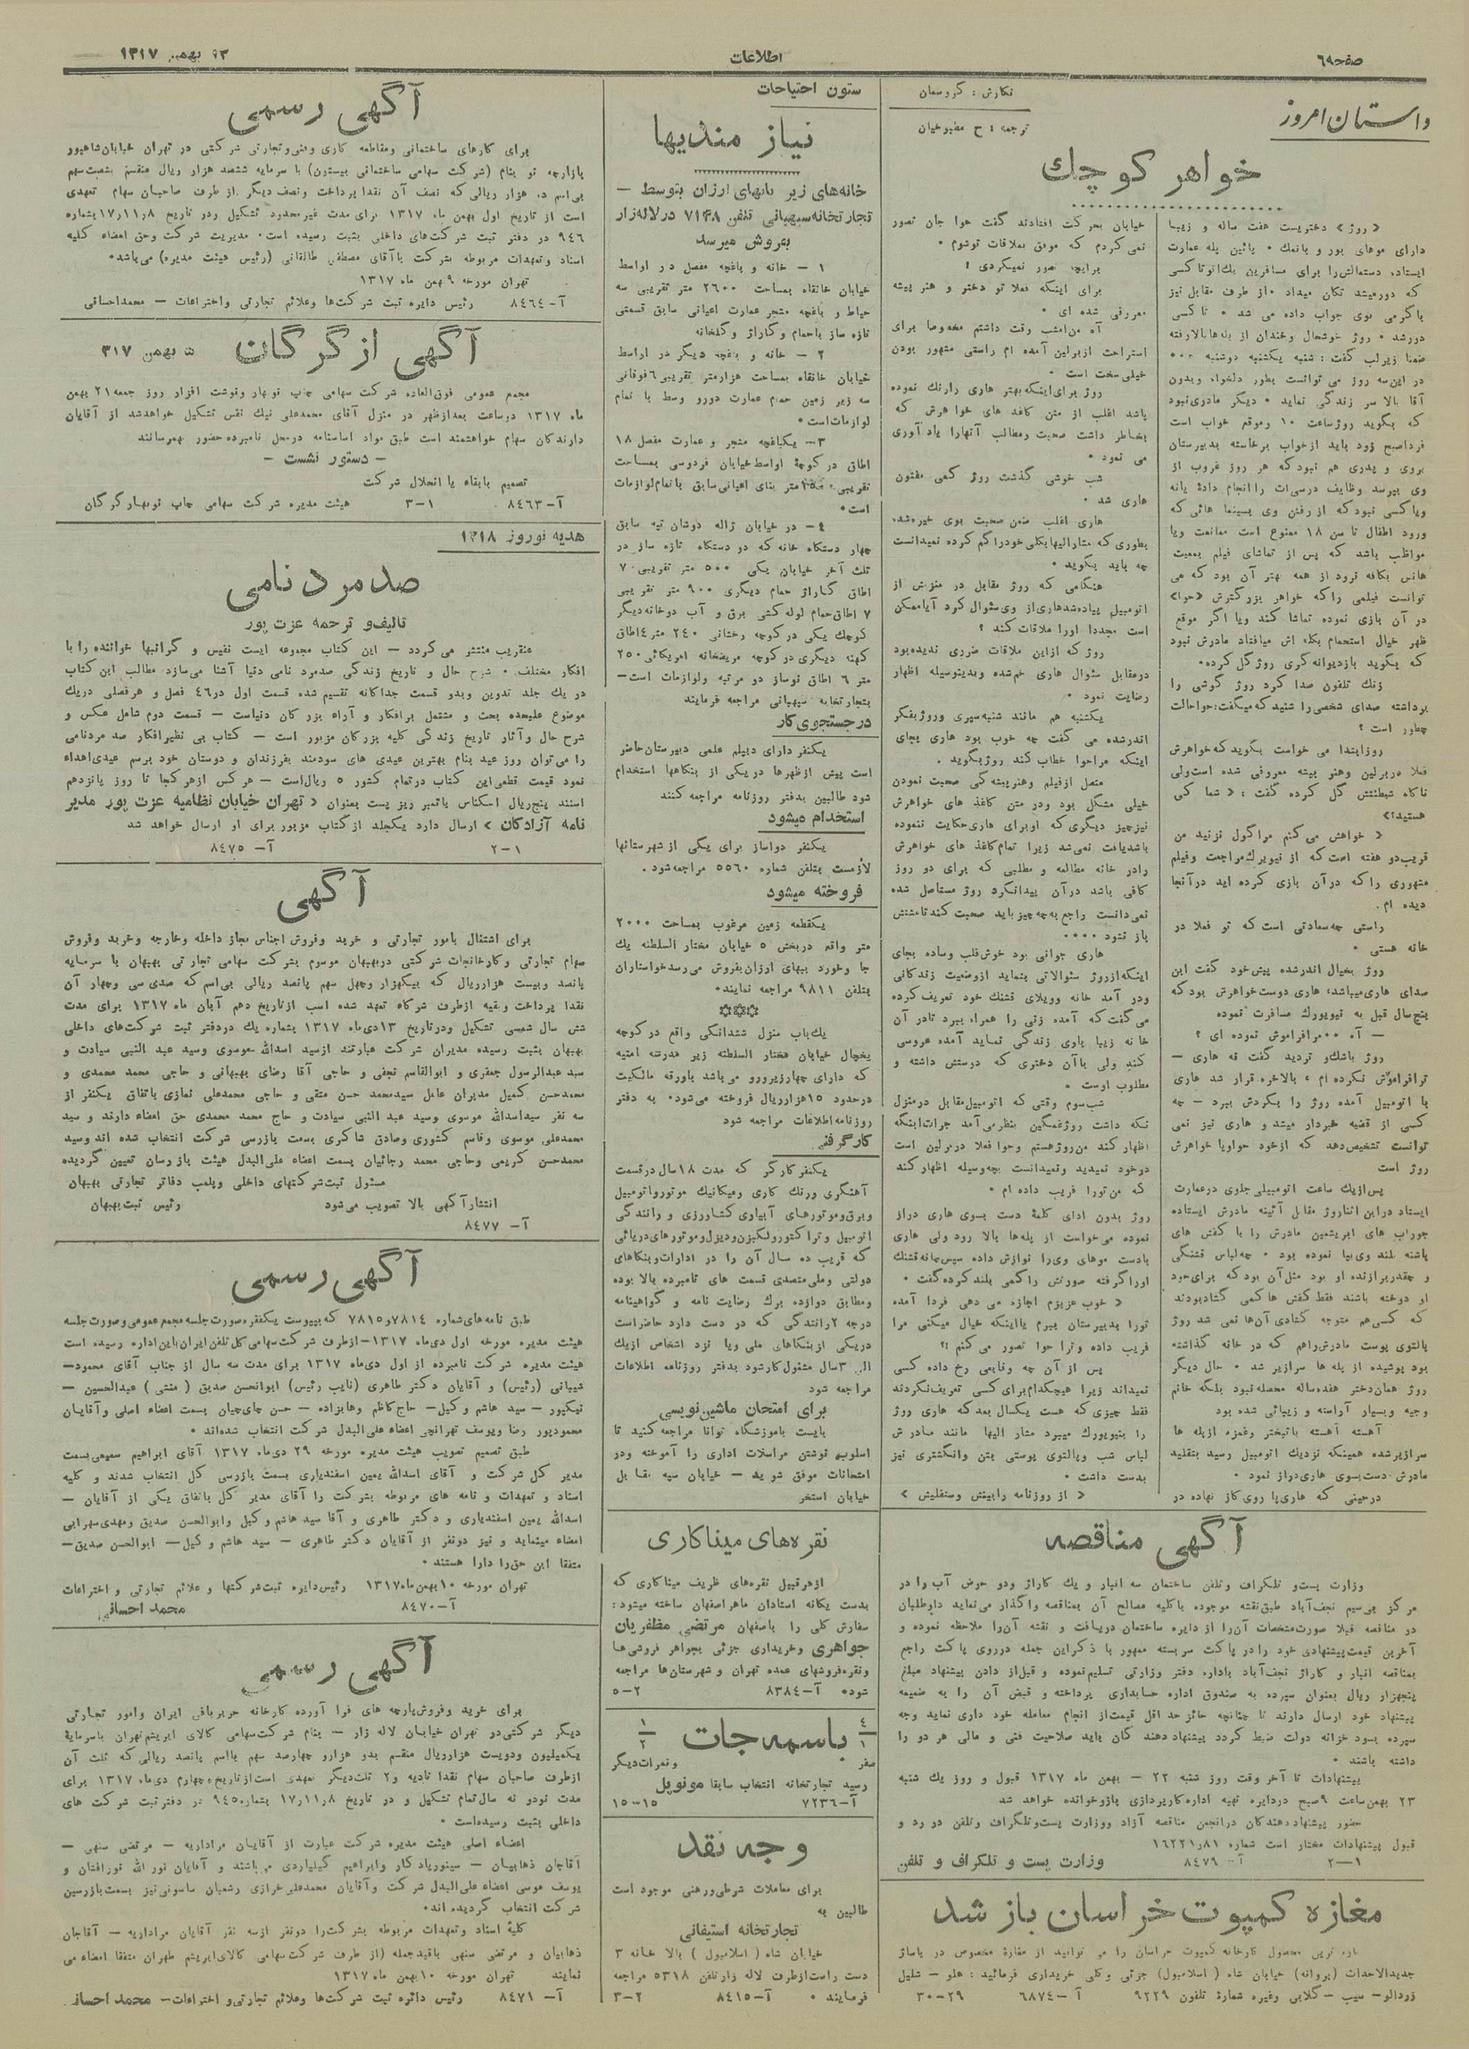 صفحه ۶
اطلاعات
۱۳ بهمن ۱۳۱۷
داستان امروز
نگارش : کروسمان
ترجمه : ح مطبوعیان
خواهر کوچك
« روژ » دختریست هفت ساله و زیبا
دارای موهای بور و بانمك ۰ پائین پله عمارت
ایستاده دستمالش را برای مسافرین یك اتوتاکسی
که دور میشد تکان میداد ۰ از طرف مقابل نیز
با گرمی بوی جواب داده می شد ۰ تاکسی
دور شد ۰ روژ خوشحال و خندان از پله ها بالا رفته
ضمنا زیر لب گفت : شنبه یکشنبه دوشنبه ۰۰۰
در این سه روز می توانست بطور دلخواه و بدون
آقا بالا سر زندگی نماید ۰ دیگر مادری نبود
که بگوید روژ ساعت ۱۰ و موقع خواب است
فردا صبح زود باید از خواب برخاسته بدبیرستان
بروی و پدری هم نبود که هر روز غروب از
وی بپرسد وظایف درسیات را انجام داده یا نه
و یا کسی نبود که از رفتن وی بسینما هائی که
ورود اطفال تا سن ۱۸ ممنوع است ممانعت و یا
مواظب باشد که پس از تماشای فیلم بمعیت
هانس بکافه نرود از همه بهتر آن بود که می
توانست فیلمی را که خواهر بزرگترش «حوا»
در آن بازی نموده تماشا کند و یا اگر موقع
ظهر خیال استحمام بکله اش میافتاد مادرش نبود
که بگوید باز دیوانه گری روژ گل کرده ۰
زنك تلفون صدا کرد روژ گوشی را
برداشته صدای شخصی را شنید که میگفت: حوا حالت
چطور است ؟
روز ابتدا می خواست بگوید که خواهرش
فعلا در برلین و هنر پیشه معروفی شده است ولی
ناگاه شیطنتش گل کرده گفت : « شما کی
هستید؟»
« خواهش می کنم مرا گول نزنید من
قریب دو هفته است که از نیویرك مراجعت و فیلم
مشهوری را که در آن بازی کرده اید در آنجا
دیده ام .
راستی چه سعادتی است که تو فعلا در
خانه هستی ۰
روژ بخیال اندر شده پیش خود گفت این
صدای هاری میباشد، هاری دوست خواهرش بود که
پنج سال قبل به نیویورك مسافرت نموده
— آه ۰۰ مرا فراموش نموده ای ؟
روژ باشك و تردید گفت نه هاری —
ترا فراموش نکرده ام ، بالاخره قرار شد هاری
با اتومبیل آمده روژ را بگردش ببرد — چه
کسی از قضیه خبردار میشد و هاری نیز نمی
توانست تشخیص دهد که از خود حوا و یا خواهرش
روژ است
پس از یك ساعت اتومبیلی جلوی در عمارت
ایستاد در این اثنا روژ مقابل آئینه مادرش ایستاده
جوراب های ابریشمین مادرش را با کفش های
پاشنه بلند وی بپا نموده بود ۰ چه لباس قشنگی
و چقدر برازنده او بود مثل آن بود که برای خود
او دوخته باشند فقط کفش ها کمی گشاد بودند
که کسی هم متوجه گشادی آن ها نمی شد روژ
پالتوی پوست مادرش را هم که در خانه گذاشته
بود پوشیده از پله ها سرازیر شد ۰ حال دیگر
روژ همان دختر هفده ساله محصله نبود بلکه خانم
وجیه و بسیار آراسته و زیبائی شده بود
آهسته آهسته با تبختر و غمزه از پله ها
سرازیر شده همینکه نزدیك اتومبیل رسید بتقلید
مادرش دست بسوی هاری دراز نمود ۰
در حینی که هاری پا روی گاز نهاده در
خیابان بحرکت افتادند گفت حوا جان تصور
نمی کردم که موفق بملاقات تو شوم ۰
برای چه تصور نمیکردی ؟
برای اینکه فعلا تو دختر و هنر پیشه
معروفی شده ای ۰
آه من امشب وقت داشتم مخصوصا برای
استراحت از برلین آمده ام راستی مشهور بودن
خیلی سخت است ۰
روژ برای اینکه بهتر هاری را رنك نموده
باشد اغلب از متن کاغذ های خواهرش که
بخاطر داشت صحبت و مطالب آنها را یاد آوری
می نمود ۰
شب خوشی گذشت روژ کمی مفتون
هاری شد ۰
هاری اغلب ضمن صحبت بوی خیره شده،
بطوری که مشار الیها بکلی خود را گم کرده نمیدانست
چه باید بگوید ۰
هنگامی که روژ مقابل در منزلش از
اتومبیل پیاده شد هاری از وی سئوال کرد آیا ممکن
است مجددا او را ملاقات کند ؟
روژ که از این ملاقات ضرری ندیده بود
در مقابل سئوال هاری خم شده و بدینوسیله اظهار
رضایت نمود ۰
یکشنبه هم مانند شنبه سپری و روژ بفکر
اندر شده می گفت چه خوب بود هاری بجای
اینکه مرا حوا خطاب کند روژ بگوید .
متصل از فیلم و هنر پیشه گی صحبت نمودن
خیلی مشکل بود و در متن کاغذ های خواهرش
نیز چیز دیگری که او برای هاری حکایت ننموده
باشد یافت نمی شد زیرا تمام کاغذ های خواهرش
را در خانه مطالعه و مطلبی که برای دو روز
کافی باشد در آن پیدا نکرد روژ مستاصل شده
نمی دانست راجع به چه چیز باید صحبت کند تا مشتش
باز نشود ۰۰۰۰
هاری جوانی بود خوش قلب و ساده بجای
اینکه از روژ سئوالاتی بنماید از وضعیت زندگانی
و در آمد خانه و ویلای قشنك خود تعریف کرده
می گفت که آمده زنی را همراه ببرد تا در آن
خانه زیبا یاری زندگی نماید آمده عروسی
کند ولی با آن دختری که دوستش داشته و
مطلوب اوست ۰
شب سوم وقتی که اتومبیل مقابل در منزل
نگه داشت روژ غمگین بنظر می آمد جرات اینکه
اظهار کند من روژ هستم و حوا فعلا در برلین است
در خود نمیدید و نمیدانست بچه وسیله اظهار کند
که من تو را فریب داده ام ۰
روژ بدون ادای کلمهٔ دست بسوی هاری دراز
نموده می خواست از پله ها بالا رود ولی هاری
با دست موهای وی را نوازش داده سپس چانه قشنك
او را گرفته صورتش را کمی بلند کرده گفت ۰
« خوب عزیزم اجازه می دهی فردا آمده
تو را بدبیرستان ببرم یا اینکه خیال میکنی مرا
فریب داده و ترا حوا تصور می کنم ؟؛
پس از آن چه وقایعی رخ داده کسی
نمیداند زیرا هیچکدام برای کسی تعریف نکردند
فقط چیزی که هست یکسال بعد که هاری روژ
را بنیویورك میبرد مشار الیها مانند مادرش
لباس شب و پالتوی پوستی بتن و انگشتری نیز
بدست داشت ۰
« از روزنامه راینیش وستفلیش »
آگهی مناقصه
وزارت پست و تلگراف و تلفن ساختمان سه انبار و یك گاراژ و دو حوض آب را در
مرکز بی سیم نجف آباد طبق نقشه موجوده با کلیه مصالح آن بمناقصه واگذار می نماید داوطلبان
در مناقصه قبلا صورت مشخصات آن را از دایره ساختمان دریافت و نقشه آن را ملاحظه نموده و
آخرین قیمت پیشنهادی خود را در پاکت سربسته ممهور با ذکر این جمله در روی پاکت راجع
بمناقصه انبار و گاراژ نجف آباد باداره دفتر وزارتی تسلیم نموده و قبل از دادن پیشنهاد مبلغ
پنجهزار ریال بعنوان سپرده به صندوق اداره حسابداری پرداخته و قبض آن را به ضمیمه
پیشنهاد خود ارسال دارند تا چنانچه حائز حد اقل قیمت از انجام معامله خود داری نماید وجه
سپرده بسود خزانه دولت ضبط گردد پیشنهاد دهند گان باید صلاحیت فنی و مالی هر دو را
داشته باشند ۰
پیشنهادات تا آخر وقت روز شنبه ۲۲ — بهمن ماه ۱۳۱۷ قبول و روز یك شنبه
۲۳ بهمن ساعت ۹ صبح در دایره تهیه اداره کارپردازی باز و خوانده خواهد شد
حضور پیشنهاد دهندگان در انجمن مناقصه آزاد و وزارت پست و تلگراف و تلفن در رد و
قبول پیشنهادات مختار است شماره ۱۶۲۲۱٫۸۱
۱—۲ آ- ۸۴۷۹ وزارت پست و تلگراف و تلفن
مغازه کمپوت خراسان باز شد
تازه ترین محصول کارخانه کمپوت خراسان را می توانید از مغازهٔ مخصوص در پاساژ
جدید الاحداث (پروانه) خیابان شاه ( اسلامبول) جزئی و کلی خریداری فرمائید : هلو — شلیل
زردالو— سیب — گلابی وغیره شمارهٔ تلفون ۹۲۲۹ آ —۶۸۷۴ ۲۹—۳۰
ستون احتیاجات
نیاز مندیها
خانه های زیر ببهای ارزان بتوسط —
تجارتخانه سپهبانی تلفن ۷۱۴۸ در لاله زار
بفروش میرسد
۱ — خانه و باغچه مفصل در اواسط
خیابان خانقاه بمساحت ۲۶۰۰ متر تقریبی سه
حیاط و باغچه مشجر عمارت اعیانی سابق قسمتی
تازه ساز با حمام و گاراژ و گلخانه
۲ — خانه و باغچه دیگر در اواسط
خیابان خانقاه بمساحت هزار متر تقریبی ۶ فوقانی
سه زیر زمین حمام عمارت دورو وسط با تمام
لوازمات است ۰
۳— یکباغچه مشجر و عمارت مفصل ۱۸
اطاق در کوچهٔ اواسط خیابان فردوسی بمساحت
تقریبی متر بنای اعیانی سابق با تمام لوازمات
است ۰
۴ — در خیابان ژاله دوشان تپه سابق
چهار دستگاه خانه که دو دستگاه تازه ساز در
ثلث آخر خیابان یکی ۵۰۰ متر تقریبی ۷
اطاق گاراژ حمام دیگری ۹۰۰ متر تقریبی
۷ اطاق حمام لوله کشی برق و آب دو خانه دیگر
کوچك یکی در کوچه رختائی ۲۴۰ متر ۴ اطاق
کهنه دیگری در کوچه مریضخانه امریکائی ۲۵۰
متر ۶ اطاق نوساز دو مرتبه و لوازمات است—
بتجارتخانه سپهبانی مراجعه فرمایند
در جستجوی کار
یکنفر دارای دیپلم علمی دبیرستان حاضر
است پیش از ظهرها در یکی از بنگاهها استخدام
شود طالبین بدفتر روزنامه مراجعه کنند
استخدام میشود
یکنفر دواساز برای یکی از شهرستانها
لازمست بتلفن شماره ۵۵۶۰ مراجعه شود .
فروخته میشود
یکقطعه زمین مرغوب بمساحت ۲۰۰۰
متر واقع در بخش ۵ خیابان مختار السلطنه یك
جا و خورد ببهای ارزان بفروش می رسد خواستاران
بتلفن ۹۸۱۱ مراجعه نمایند ۰
***
یك باب منزل ششدانگی واقع در کوچه
یخچال خیابان مختار السلطنه زیر مدرسه امنیه
که دارای چهار زیر و رو می باشد با ورقه مالکیت
در حدود ۱۵ هزار ریال فروخته می شود ۰ به دفتر
روزنامه اطلاعات مراجعه شود
کار گرفنی
یکنفر کارگر که مدت ۱۸ سال در قسمت
آهنگری و رنك کاری و میکانیك موتور و اتومبیل
و برق و موتورهای آبیاری کشاورزی و رانندگی
اتومبیل و تراکتور ولکبزن و دیزل و موتور های دریائی
که قریب ده سال آن را در ادارات و بنگاهای
دولتی و ملی متصدی قسمت های نامبرده بالا بوده
و مطابق دوازده برك رضایت نامه و گواهینامه
درجه ۲ رانندگی که در دست دارد حاضر است
در یکی از بنگاهای ملی و یا نزد اشخاص از یك
الی ۳ سال مشغول کار شود بدفتر روزنامه اطلاعات
مراجعه شود
برای امتحان ماشین نویسی
بایست بآموزشگاه توانا مراجعه کنید تا
اسلوب نوشتن مراسلات اداری را آموخته و در
امتحانات موفق شوید — خیابان سپه مقابل
خیابان استخر
نقره های میناکاری
از هر قبیل نقره های ظریف میناکاری که
بدست یگانه استادان ماهر اصفهان ساخته میشود :
سفارش کلی را باصفهان مرتضی مظفریان
جواهری و خریداری جزئی بجواهر فروشی ها
و نقره فروشهای عمده تهران و شهرستان ها مراجعه
شود ۰ آ—۸۳۸۴ ۲—۵
۴/۱ باسمه جات ۱/۲
صفر و نمرات دیگر
رسید تجارتخانه انتخاب سابقا مونوپل
آ—۷۲۳۶ ۱۵—۱۵
وجه نقد
برای معاملات شرطی و رهنی موجود است
طالبین به
تجارتخانه استیفانی
خیابان شاه ( اسلامبول ) بالا خانه ۳
دست راست از طرف لاله زار تلفن ۵۳۱۸ مراجعه
فرمایند ۰ آ—۸۴۱۵ ۲—۳
آگهی رسمی
برای کارهای ساختمانی و مقاطعه کاری و فنی و تجارتی شرکتی در تهران خیابان شاهپور
بازارچه نو بنام (شرکت سهامی ساختمانی بیستون) با سرمایه ششصد هزار ریال منقسم بشصت سهم
بی اسم ده هزار ریالی که نصف آن نقدا پرداخت و نصف دیگر از طرف صاحبان سهام تعهدی
است از تاریخ اول بهمن ماه ۱۳۱۷ برای مدت غیر محدود تشکیل و در تاریخ ۱۷٫۱۱٫۸ بشماره
۹۴۶ در دفتر ثبت شرکت های داخلی بثبت رسیده است ۰ مدیریت شرکت و حق امضاء کلیه
اسناد و تعهدات مربوطه بشرکت با آقای مصطفی طالقانی (رئیس هیئت مدیره) می باشد ۰
تهران مورخه ۹ بهمن ماه ۱۳۱۷
آ— ۸۴۶۴ رئیس دایره ثبت شرکت ها و علائم تجارتی و اختراعات — محمد احسانی
آگهی از گرگان ۵ بهمن ۳۱۷
مجمع عمومی فوق العاده شرکت سهامی چاپ نوبهار و نوشت افزار روز جمعه ۲۱ بهمن
ماه ۱۳۱۷ در ساعت بعد از ظهر در منزل آقای محمد علی نیك نفس تشکیل خواهد شد از آقایان
دارندگان سهام خواهشمند است طبق مواد اساسنامه در محل نامبرده حضور بهمرسانند
— دستور نشست —
تصمیم بابقاء یا انحلال شرکت
آ—۸۴۶۳ ۱—۳ هیئت مدیره شرکت سهامی چاپ نوبهار گرگان
هدیه نوروز ۱۳۱۸
صد مرد نامی
تالیف و ترجمه عزت پور
عنقریب منتشر می گردد — این کتاب مجموعه ایست نفیس و گرانبها خواننده را با
افکار مختلف ۰ شرح حال و تاریخ زندگی صد مرد نامی دنیا آشنا می سازد مطالب این کتاب
در یك جلد تدوین و بدو قسمت جداگانه تقسیم شده قسمت اول در ۴۶ فصل و هر فصلی در یك
موضوع علیحده بحث و مشتمل بر افکار و آراء بزرگان دنیاست — قسمت دوم شامل عکس و
شرح حال و آثار تاریخ زندگی کلیه بزرگان مزبور است — کتاب بی نظیر افکار صد مرد نامی
را می توان روز عید بنام بهترین عیدی های سودمند بفرزندان و دوستان خود برسم عیدی اهداء
نمود قیمت قطعی این کتاب در تمام کشور ۵ ریال است — هر کس از هر کجا تا روز پانزدهم
اسفند پنج ریال اسکناس یا تمبر زیر پست بعنوان « تهران خیابان نظامیه عزت پور مدیر
نامه آزادگان » ارسال دارد یکجلد از کتاب مزبور برای او ارسال خواهد شد
۱—۲ آ— ۸۴۷۵
آگهی
برای اشتغال بامور تجارتی و خرید و فروش اجناس مجاز داخله و خارجه و خرید و فروش
سهام تجارتی و کارخانجات شرکتی در بهبهان موسوم بشرکت سهامی تجارتی بهبهان با سرمایه
پانصد و بیست هزار ریال که بیکهزار و چهل سهم پانصد ریالی بی اسم که صدی سی و چهار آن
نقدا پرداخت و بقیه از طرف شرکاء تعهد شده است از تاریخ دهم آبان ماه ۱۳۱۷ برای مدت
شش سال شمسی تشکیل و در تاریخ ۱۳ دی ماه ۱۳۱۷ بشماره یك در دفتر ثبت شرکت های داخلی
بهبهان بثبت رسیده مدیران شرکت عبارتند از سید اسدالله موسوی و سید عبد النبی سیادت و
سید عبدالرسول جعفری و ابوالقاسم نجفی و حاجی آقا رضای بهبهانی و حاجی محمد محمدی و
محمد حسن کمیل مدیران عامل سید محمد حسن متقی و حاجی محمد علی نمازی باتفاق یکنفر از
سه نفر سید اسدالله موسوی و سید عبد النبی سیادت و حاج محمد محمدی حق امضاء دارند و سید
محمد علی موسوی و قاسم کشوری و صادق شاکری بسمت بازرسی شرکت انتخاب شده اند و سید
محمد حسن کریمی و حاجی محمد رجائیان بسمت اعضاء علی البدل هیئت بازرسان تعیین گردیده
مسئول ثبت شرکتهای داخلی و پلمب دفاتر تجارتی بهبهان
انتشار آگهی بالا تصویب می شود رئیس ثبت بهبهان
آ— ۸۴۷۷
آگهی رسمی
طبق نامه های شماره ۷۸۱۴ و ۷۸۱۵ که بپیوست یکفقره صورت جلسه مجمع عمومی و صورت جلسه
هیئت مدیره مورخه اول دی ماه ۱۳۱۷— از طرف شرکت سهامی کل تلفن ایران باین اداره رسیده است
هیئت مدیره شرکت نامبرده از اول دی ماه ۱۳۱۷ برای مدت سه سال از جناب آقای محمود—
شیبانی (رئیس) و آقایان دکتر طاهری (نایب رئیس) ابوالحسن صدیق ( منشی ) عبدالحسین —
نیکپور — سید هاشم وکیل — حاج کاظم وهابزاده — حسن چای چیان بسمت اعضاء اصلی و آقایان
محمود پور رضا و یوسف تهرانچی اعضاء علی البدل شرکت انتخاب شده اند ۰
طبق تصمیم تصویب هیئت مدیره مورخه ۲۹ دی ماه ۱۳۱۷ آقای ابراهیم سمیعی بسمت
مدیر کل شرکت و آقای اسدالله یمین اسفندیاری بسمت بازرسی کل انتخاب شدند و کلیه
اسناد و تعهدات و نامه های مربوطه بشرکت را آقای مدیر کل باتفاق یکی از آقایان —
اسدالله یمین اسفندیاری و دکتر طاهری و آقا سید هاشم وکیل و ابوالحسن صدیق و مهدی سهرابی
امضاء مینماید و نیز دو نفر از آقایان دکتر طاهری — سید هاشم وکیل — ابوالحسن صدیق —
متفقا این حق را دارا هستند ۰
تهران مورخه ۱۰ بهمن ماه ۱۳۱۷ رئیس دایره ثبت شرکتها و علائم تجارتی و اختراعات
آ—۸۴۷۰ محمد احسانی
آگهی رسمی
برای خرید و فروش پارچه های فرا آورده کارخانه حریربافی ایران و امور تجارتی
دیگر شرکتی در تهران خیابان لاله زار — بنام شرکت سهامی کالای ابریشم تهران با سرمایهٔ
یکمیلیون و دویست هزار ریال منقسم بدو هزار و چهارصد سهم با اسم پانصد ریالی که ثلث آن
از طرف صاحبان سهام نقدا تادیه و ۲ ثلث دیگر تعهدی است از تاریخ چهارم دی ماه ۱۳۱۷ برای
مدت نود و نه سال تمام تشکیل و در تاریخ ۱۷٫۱۱٫۸ بشماره ۹۴۵ در دفتر ثبت شرکت های
داخلی بثبت رسیده است ۰
اعضاء اصلی هیئت مدیره شرکت عبارت از آقایان مرادایه — مرتضی سنهی —
آقاجان ذهابیان — سینور یادگار و ابراهیم گیلیاردی می باشند و آقایان نور الله نورافتان و
یوسف موسی اعضاء علی البدل شرکت و آقایان محمد علی خرازی و شعبان ساسونی نیز بسمت بازرسین
شرکت انتخاب گردیده اند ۰
کلیهٔ اسناد و تعهدات مربوطه بشرکت را دو نفر از سه نفر آقایان مرادایه — آقاجان
ذهابیان و مرتضی سنهی با قید جمله (از طرف شرکت سهامی کالای ابریشم طهران متفقا امضاء می
نمایند تهران مورخه ۱۰ بهمن ماه ۱۳۱۷
آ— ۸۴۷۱ رئیس دائره ثبت شرکت ها و علائم تجارتی و اختراعات— محمد احسانی